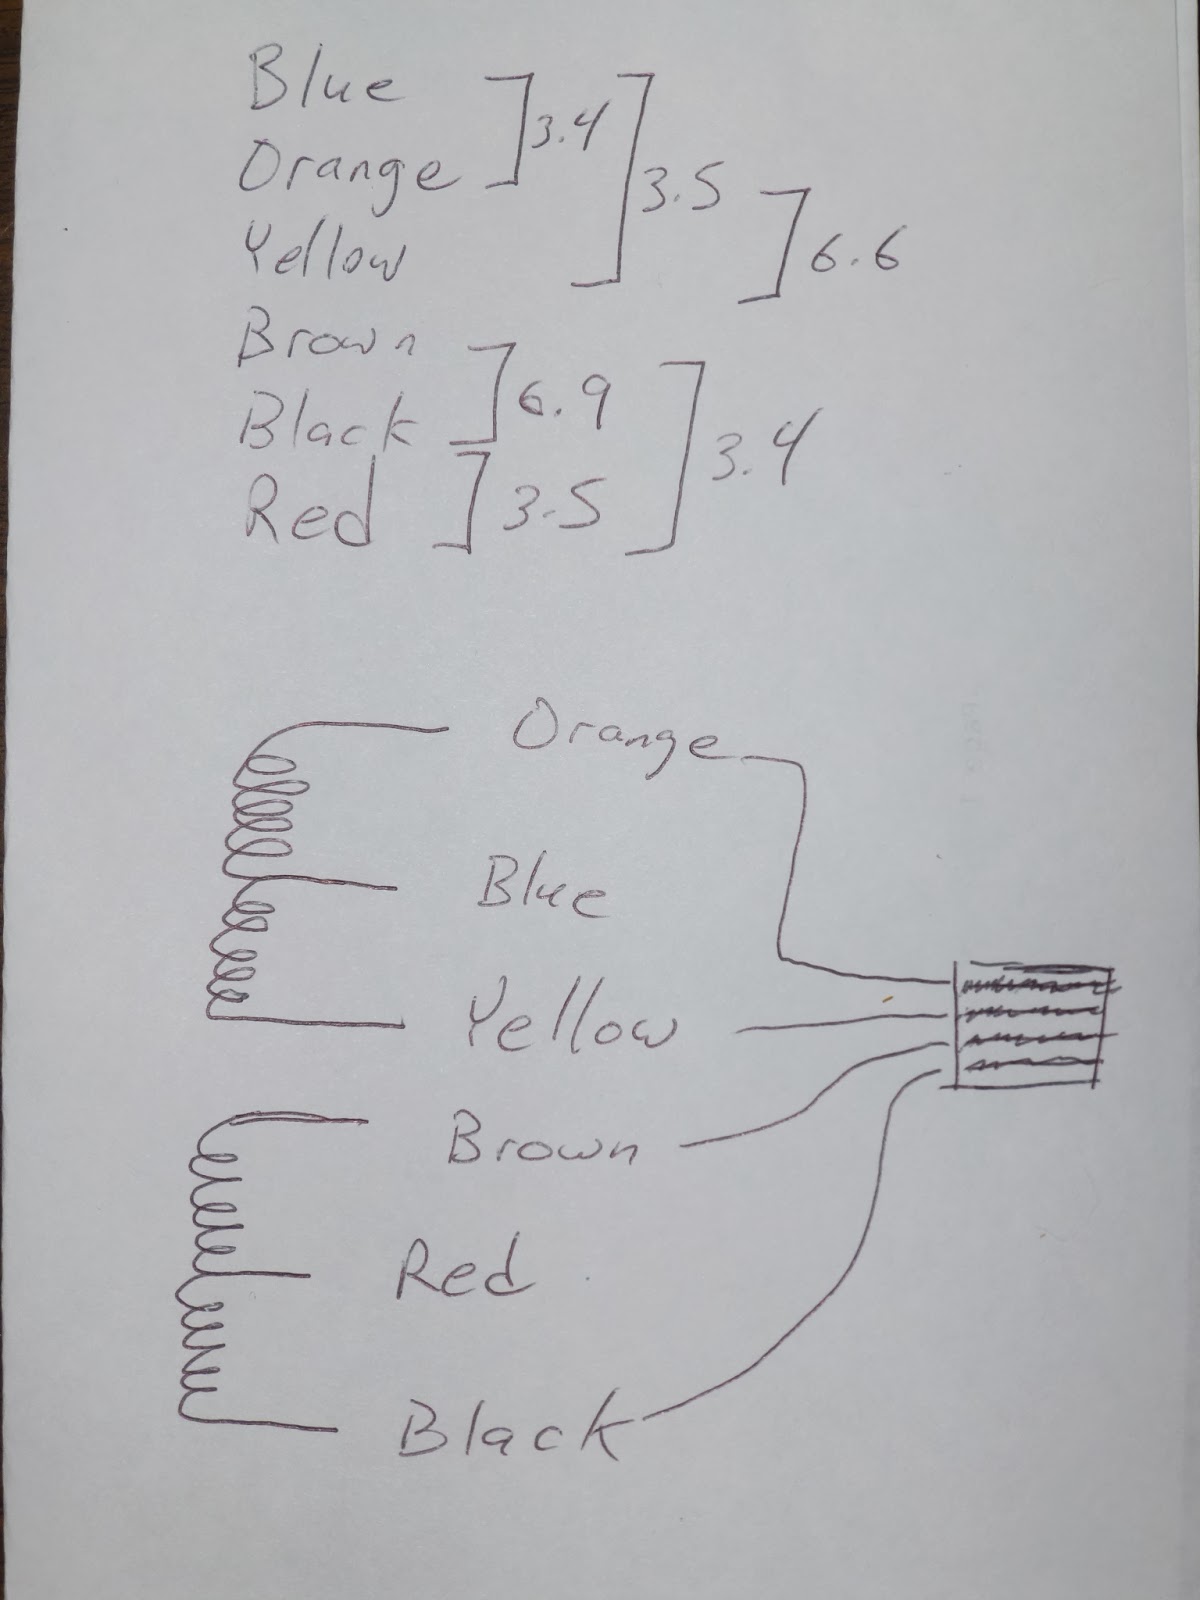 Blue
Orange
3.4
3.5
Yellow
6.6
Brown
Black
6.9
3.4
Red
3.5
Orange
Blue
Yellow
Brown
Red
Black